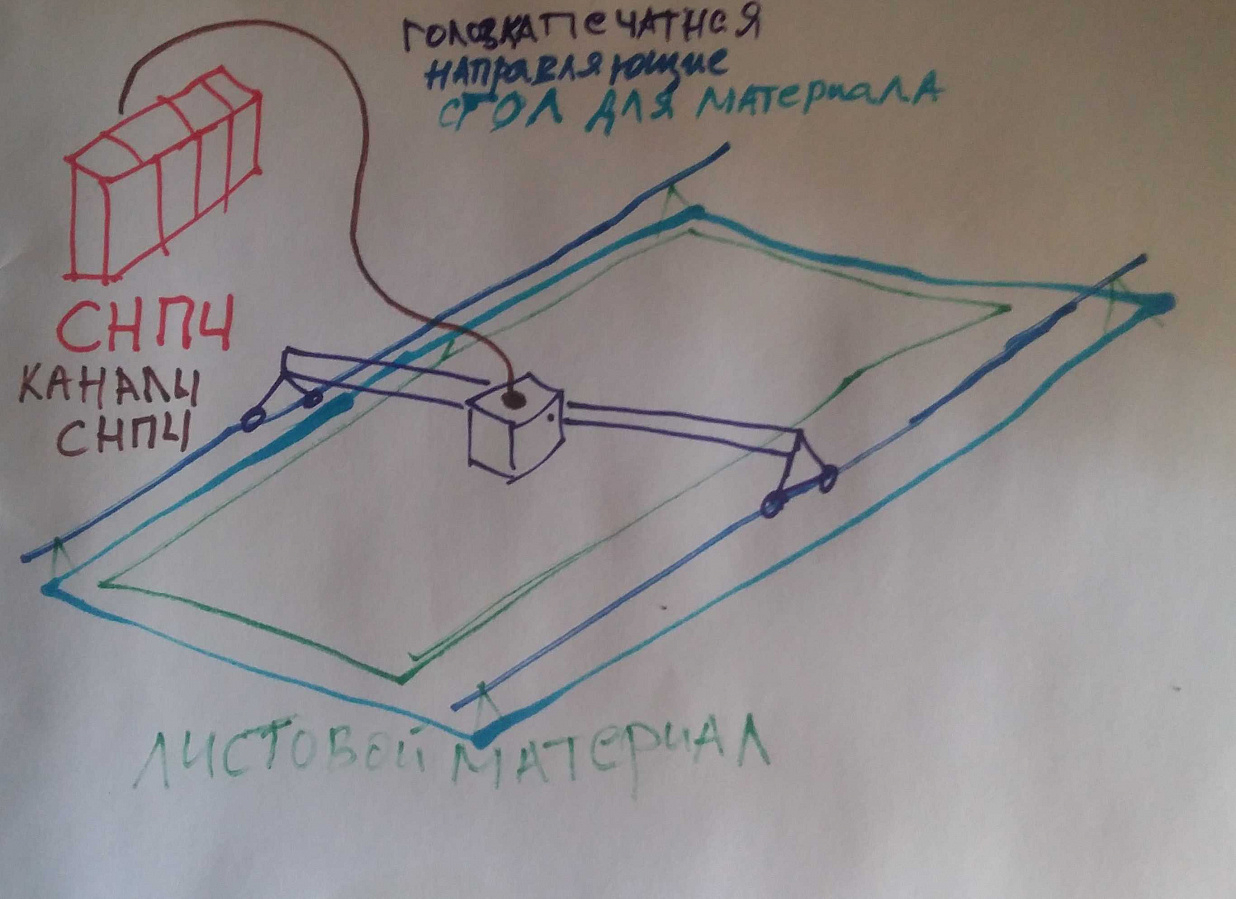 ГОЛОВКА ПЕЧАТНАЯ
НАПРАВЛЯЮЩИЕ
СТОЛ ДЛЯ МАТЕРИАЛА
СНПЧ
КАНАЛЫ
СНПЧ
ЛИСТОВОЙ МАТЕРИАЛ